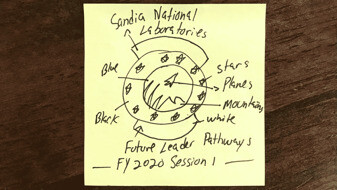 Sandia National
Laboratories
Stars
Blue
Planes
Mountains
Black
White
Future Leader Pathways
FY 2020 Session 1